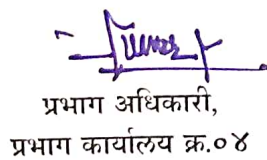 प्रभाग अधिकारी,
प्रभाग कार्यालय क्र.०४